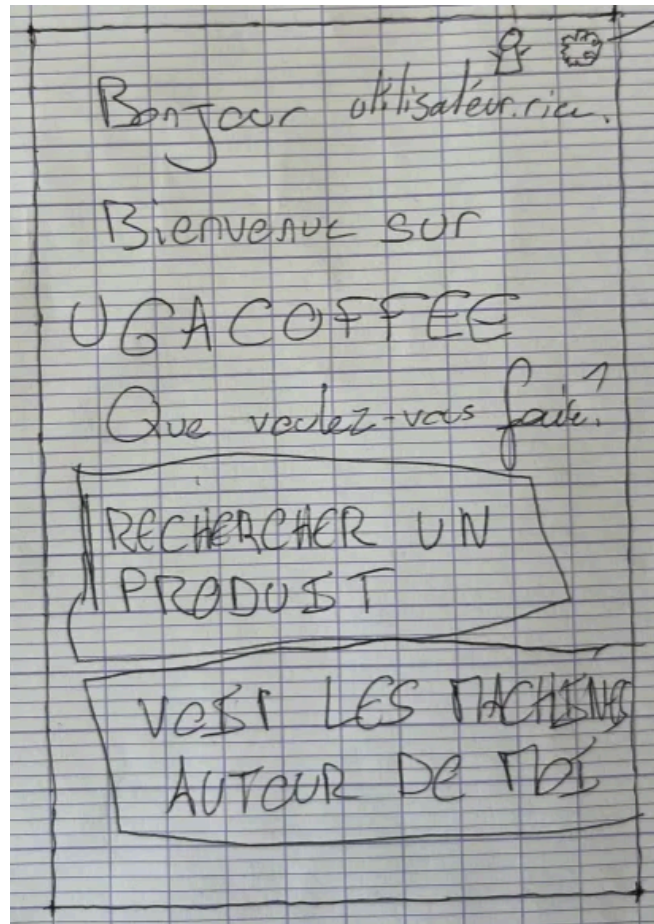 Bonjour utilisateur.rice.
Bienvenue sur
UGACOFFEE
Que voulez-vous faire?
RECHERCHER UN
PRODUIT
VOIR LES MACHINES
AUTOUR DE MOI